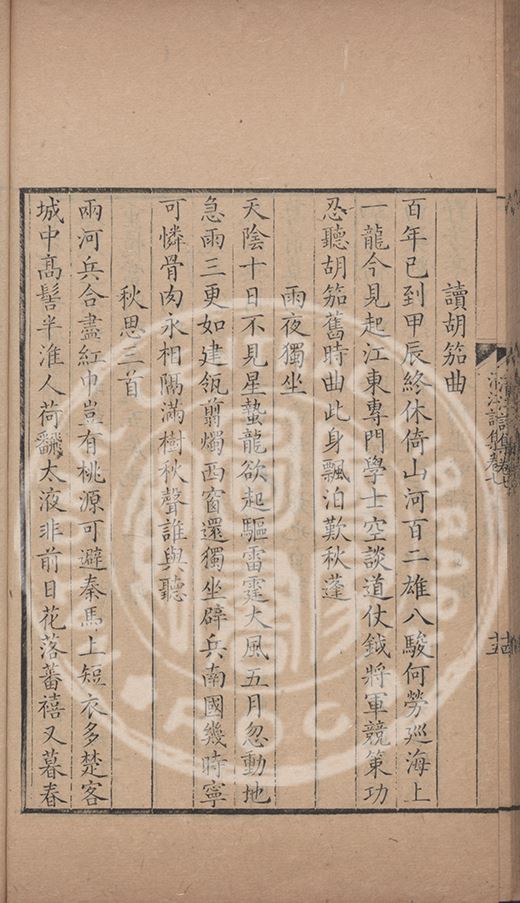 讀胡笳曲
百年已到甲辰終休倚山河百二雄八駿何勞廵海上
一龍今見起江東專門學士空談道仗鉞將軍競策功
忍聽胡笳舊時曲此身飄泊歎秋蓬
雨夜獨坐
天陰十日不見星蟄龍欲起驅雷霆大風五月忽動地
急雨三更如建瓴翦燭西窗還獨坐辟兵南國幾時寧
可憐骨肉永相隔滿樹秋聲誰與聽
秋思三首
兩河兵合盡紅巾豈有桃源可避秦馬上短衣多楚客
城中髙髻半淮人荷翻太液非前日花落蕃禧又暮春
詩集卷七